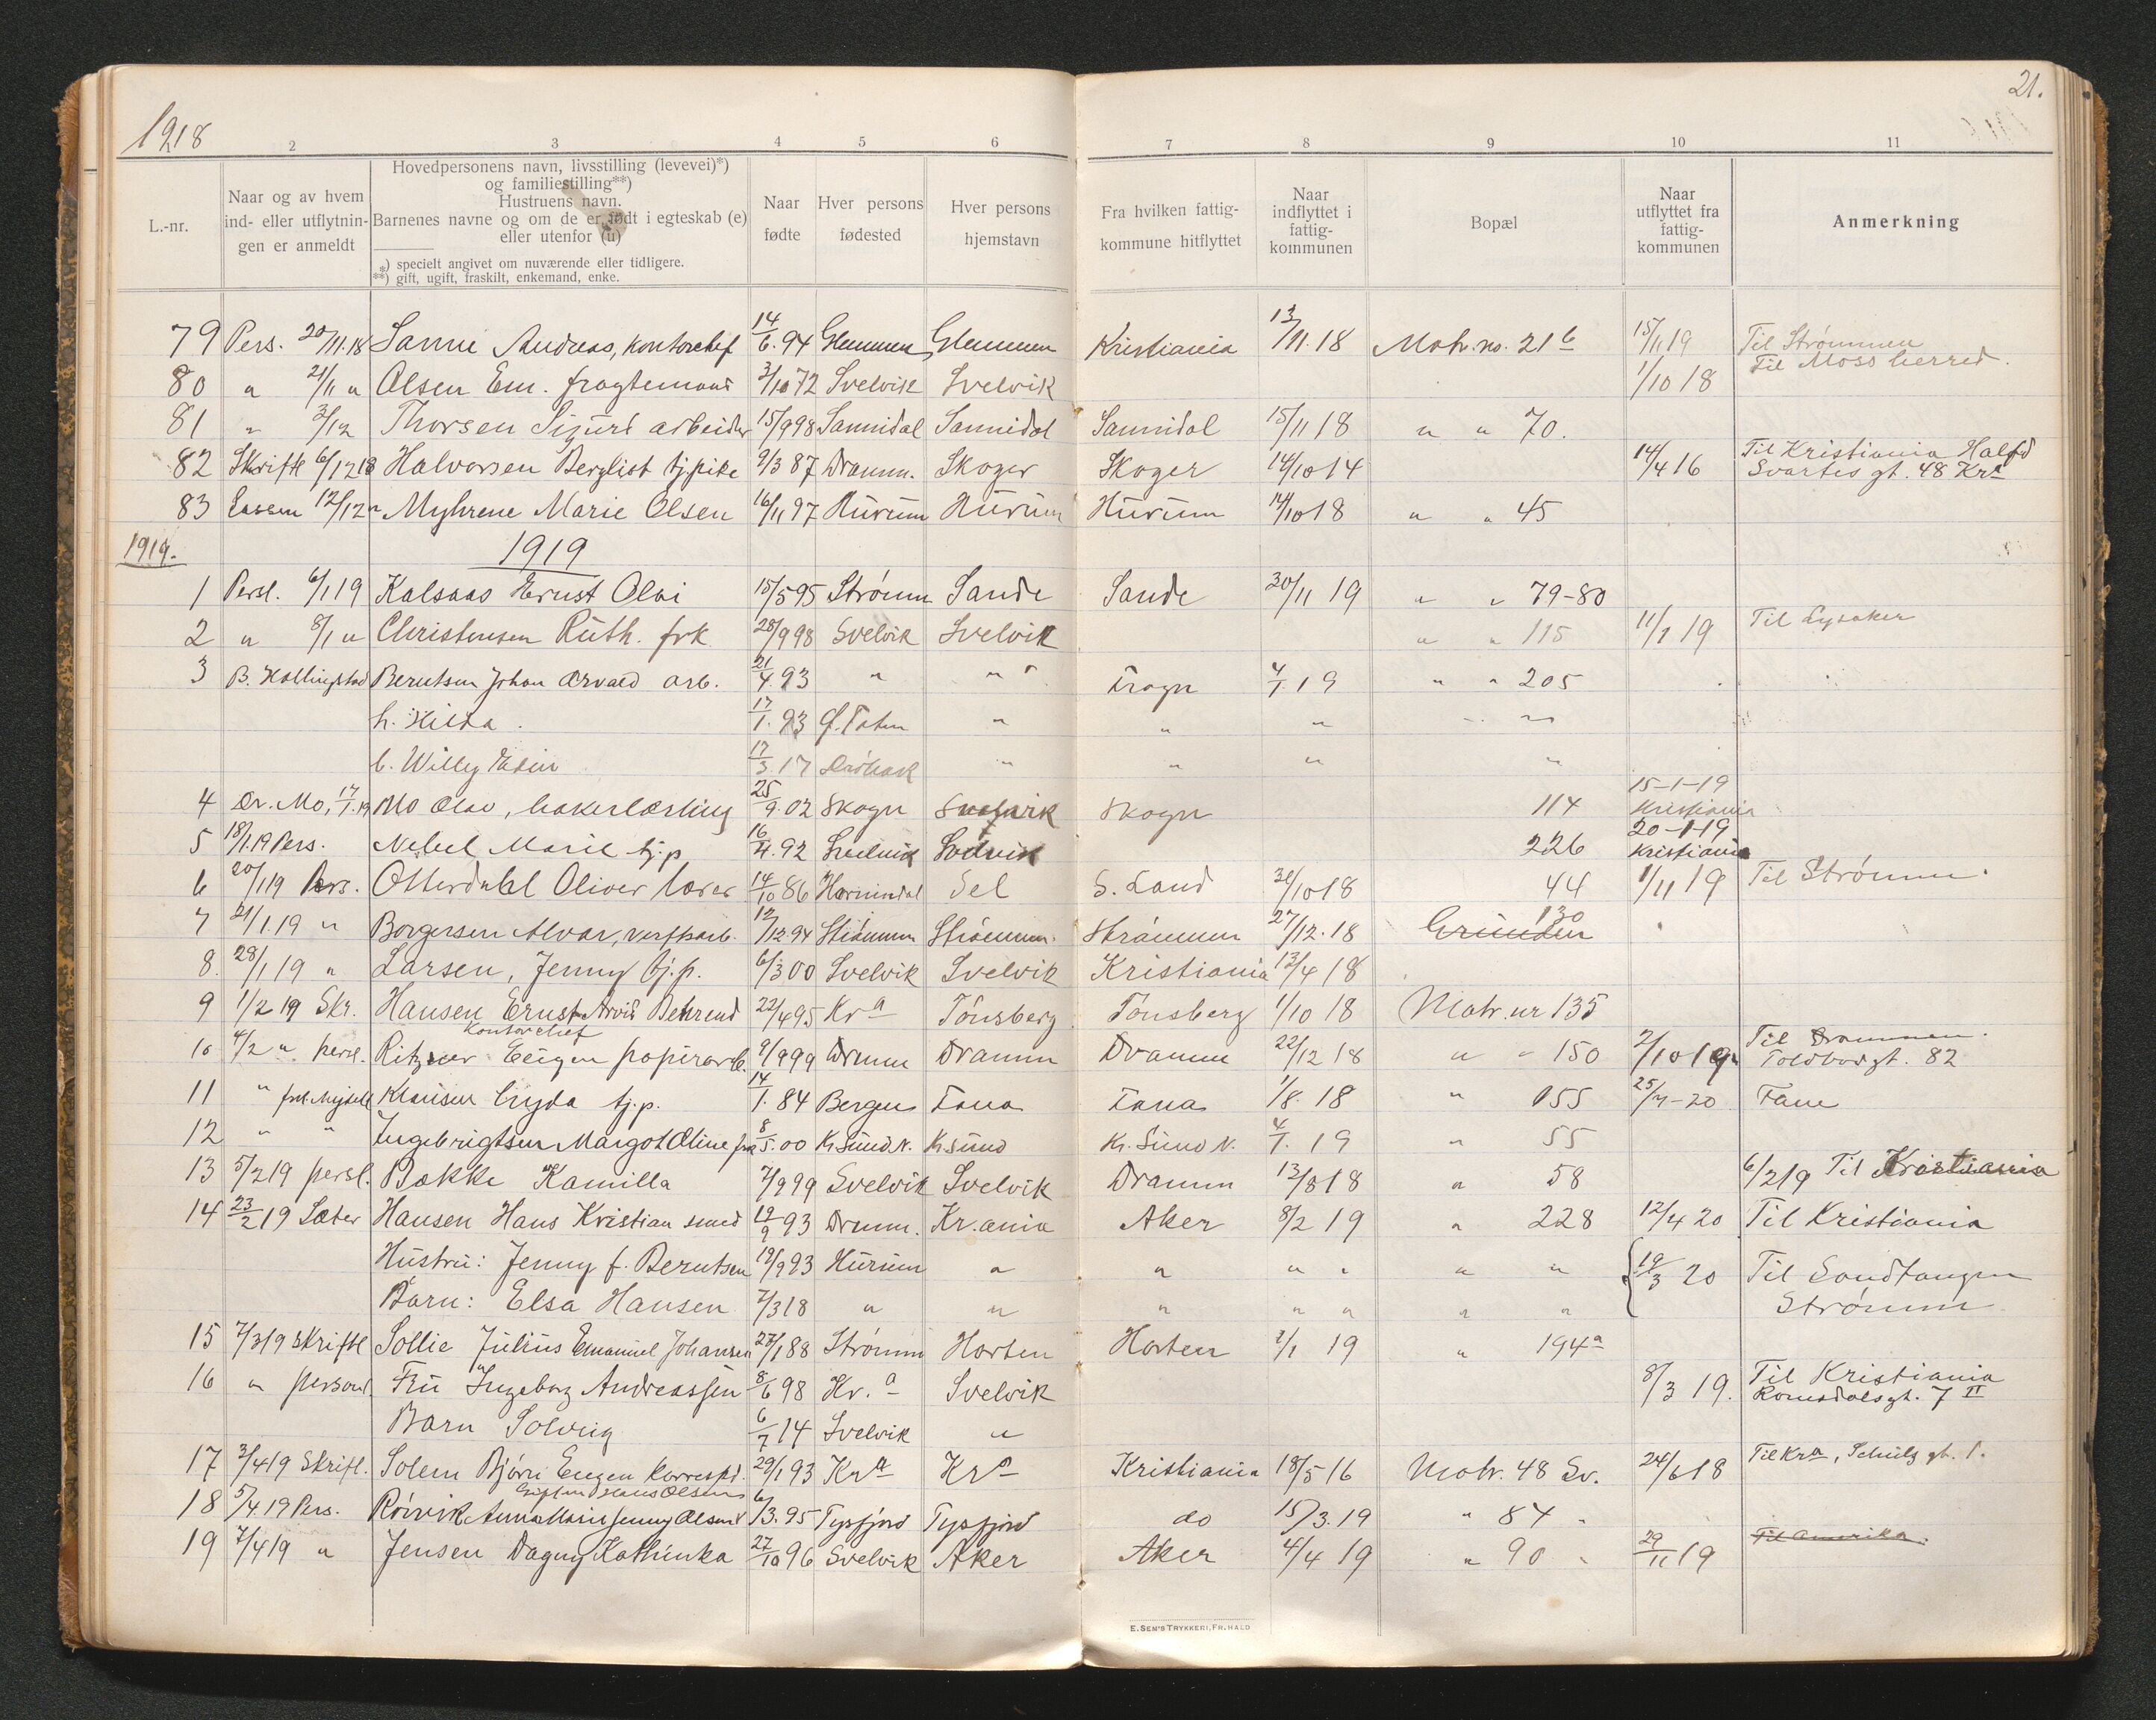 1918
21.
2 3 4 5 6 7 8 9 10 11
L.-nr.
Naar og av hvem
ind- eller utflytnin-
gen er anmeldt
Hovedpersonens navn, livsstilling (levevei)*)
og familiestilling**)
Hustruens navn.
Barnenes navne og om de er født i egteskab (e)
eller utenfor (u)
*) specielt angivet om nuværende eller tidligere.
**) gift, ugift, fraskilt, enkemand, enke.
Naar
fødte
Hver persons
fødested
Hver persons
hjemstavn
Fra hvilken fattig-
kommune hitflyttet
Naar
indflyttet i
fattig-
kommunen
Bopæl
Naar
utflyttet fra
fattig-
kommunen
Anmerkning
79 Pers. 20/11.18 Sanne Andreas, kontorchef 14/6.94 Glemmen Glemmen Kristiania 13/11.18 Matr. no. 21b 15/1 19 Til Strømmen
80 " 21/11 " Olsen Em. fragtemand 3/10 72 Svelvik Svelvik 1/10 18 Til Moss herred.
81 " 3/12 Thorsen Sigurd arbeider 15/9 98 Sannidal Sannidal Sannidal 15/11 18 " " 70.
82 Skriftl 6/12 18 Halvorsen Berglist tj.pike 9/3 87 Dramm. Skoger Skoger 14/10 14 14/4 16 Til Kristiania Halfd
Svartes gt. 48 Kra
83 12/12 " Myhrene Marie Olsen 16/11 97 Hurum Hurum Hurum 14/10 18 " " 45
1919. 1919
1 Persl. 6/1 19 Kalsaas Ernst Olai 15/5 95 Strømm Sande Sande 30/11 19 " " 79-80
2 " 8/1 " Christensen Ruth. frk. 28/9 98 Svelvik Svelvik " " 115 11/1 19 Til Lysaker
3 B. Hallingstad Berntsen Johan Arvald arb. 21/4.93 " " Frogn 4/1 19 " " 205
h. Hilda. 17/1.93 Ø. Toten " " " " "
b. Willy Edin 17/3.17 Drøbak " " " "
4 Ar. Mo, 17/1.19 Mo Olav, bakerlærling 25/9.02 Skogn Svelvik Skogn 114 15-1-19
Kristiania
5 18/1.19 Pers. Nebel Marie tj.p 16/4.92 Svelvik Svelvik 226 20-1-19
Kristiania
6 20/1 19 Pers. Otterdahl Oliver lærer 14/10 86 Hornindal Sel S. Land 30/10 18 44 1/11 19 Til Strømm.
7 21/1.19 " Borgersen Alvar, verftsarb. 12/12.94 Strømmen Strømmen Strømmen 27/12.18 Grunden 130
8. 28/1 19 " Larsen, Jenny tj.p. 6/3 00 Svelvik Svelvik Kristiania 13/4 18
9 1/2 19 Skr. Hansen Ernst Arvid Behrend 22/4 95 Kra Tönsberg Tönsberg 1/10 18 Matr. nr 135
Kontorchef
10 4/2 " persl. Ritzner Eugen papirarb. 9/9 99 Dramm Dramm Dramm 22/12 18 " " 150 2/10 19 Til Drammen.
Toldbodgt. 82
11 " Klausen Cryda tj.p. 14/1.84 Bergen Fana Fana 1/8.18 " 155 25/4-20 Fane
12 " " Ingebrigtsen Margot Oline frk 8/5.00 Kr.Sund N. Kr.sund Kr. Sund N. 4/1.19 " 55
13 5/2 19 persl. Bække Kamilla 7/9 99 Svelvik Svelvik Dramm 13/8 18 " 58 6/2 19 Til Kristiania
14 23/2 19 Sæter Hansen Hans Kristian smed 19/9 93 Dramm. Kr.ania Aker 8/2 19 " 228 12/4 20 Til Kristiania
Hustru: Jenny f. Berntsen 19/9 93 Hurum " " " " " " 19/3 20 Til Sandtangen
Barn: Elsa Hansen 7/3 18 " " " " " " " Strømm
15 7/3 19 Skriftl Sollie Julius Emanuel Johansen 27/1 88 Strømm Horten Horten 2/1 19 " 194a
16 " personl Fru Ingeborg Andreassen 8/6 98 Kr.a Svelvik 8/3 19. Til Kristiania
Romsdalsgt. 7 II
Barn Solveig 6/7 14 Svelvik "
17 3/4 19 Skriftl. Solem Bjørn Eugen Korrespd. 29/1 93 Kra Kra Kristiania 18/5 16 Matr. 48 Sv. 24/6 18 Til Kra, Schultz gt. 1.
Gift med Hans Olsen
18 5/4.19 Pers. Rørvik Anna Marie Jenny Olsen 6/3.95 Tysfjord Tysfjord do 15/3.19 " 84 "
19 7/4 19 " Jensen Dagny Kathinka 27/10 96 Svelvik Aker Aker 4/4 19 " 90 " 29/11 19 Til Amerika.
E. SEM'S TRYKKERI, FR.HALD